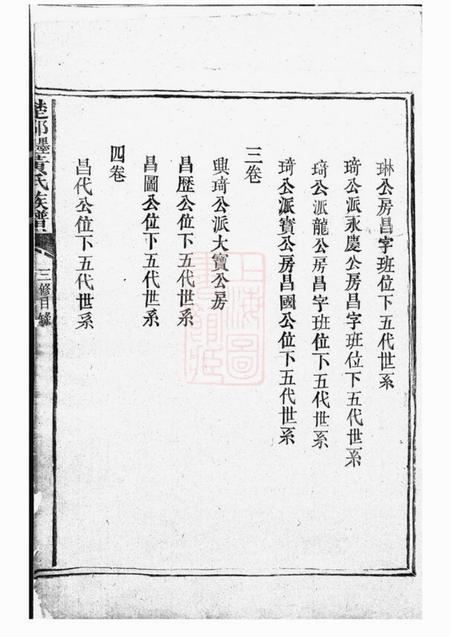 琳公房昌字班位下五代世系
琦公派永慶公房昌字班位下五代世系
琦公派龍公房昌字班位下五代世系
琦公派寶公房昌國公位下五代世系
三卷
興琦公派大寶公房
昌歷公位下五代世系
昌圖公位下五代世系
四卷
昌代公位下五代世系
黃氏族譜
三修目錄
上海圖書館藏